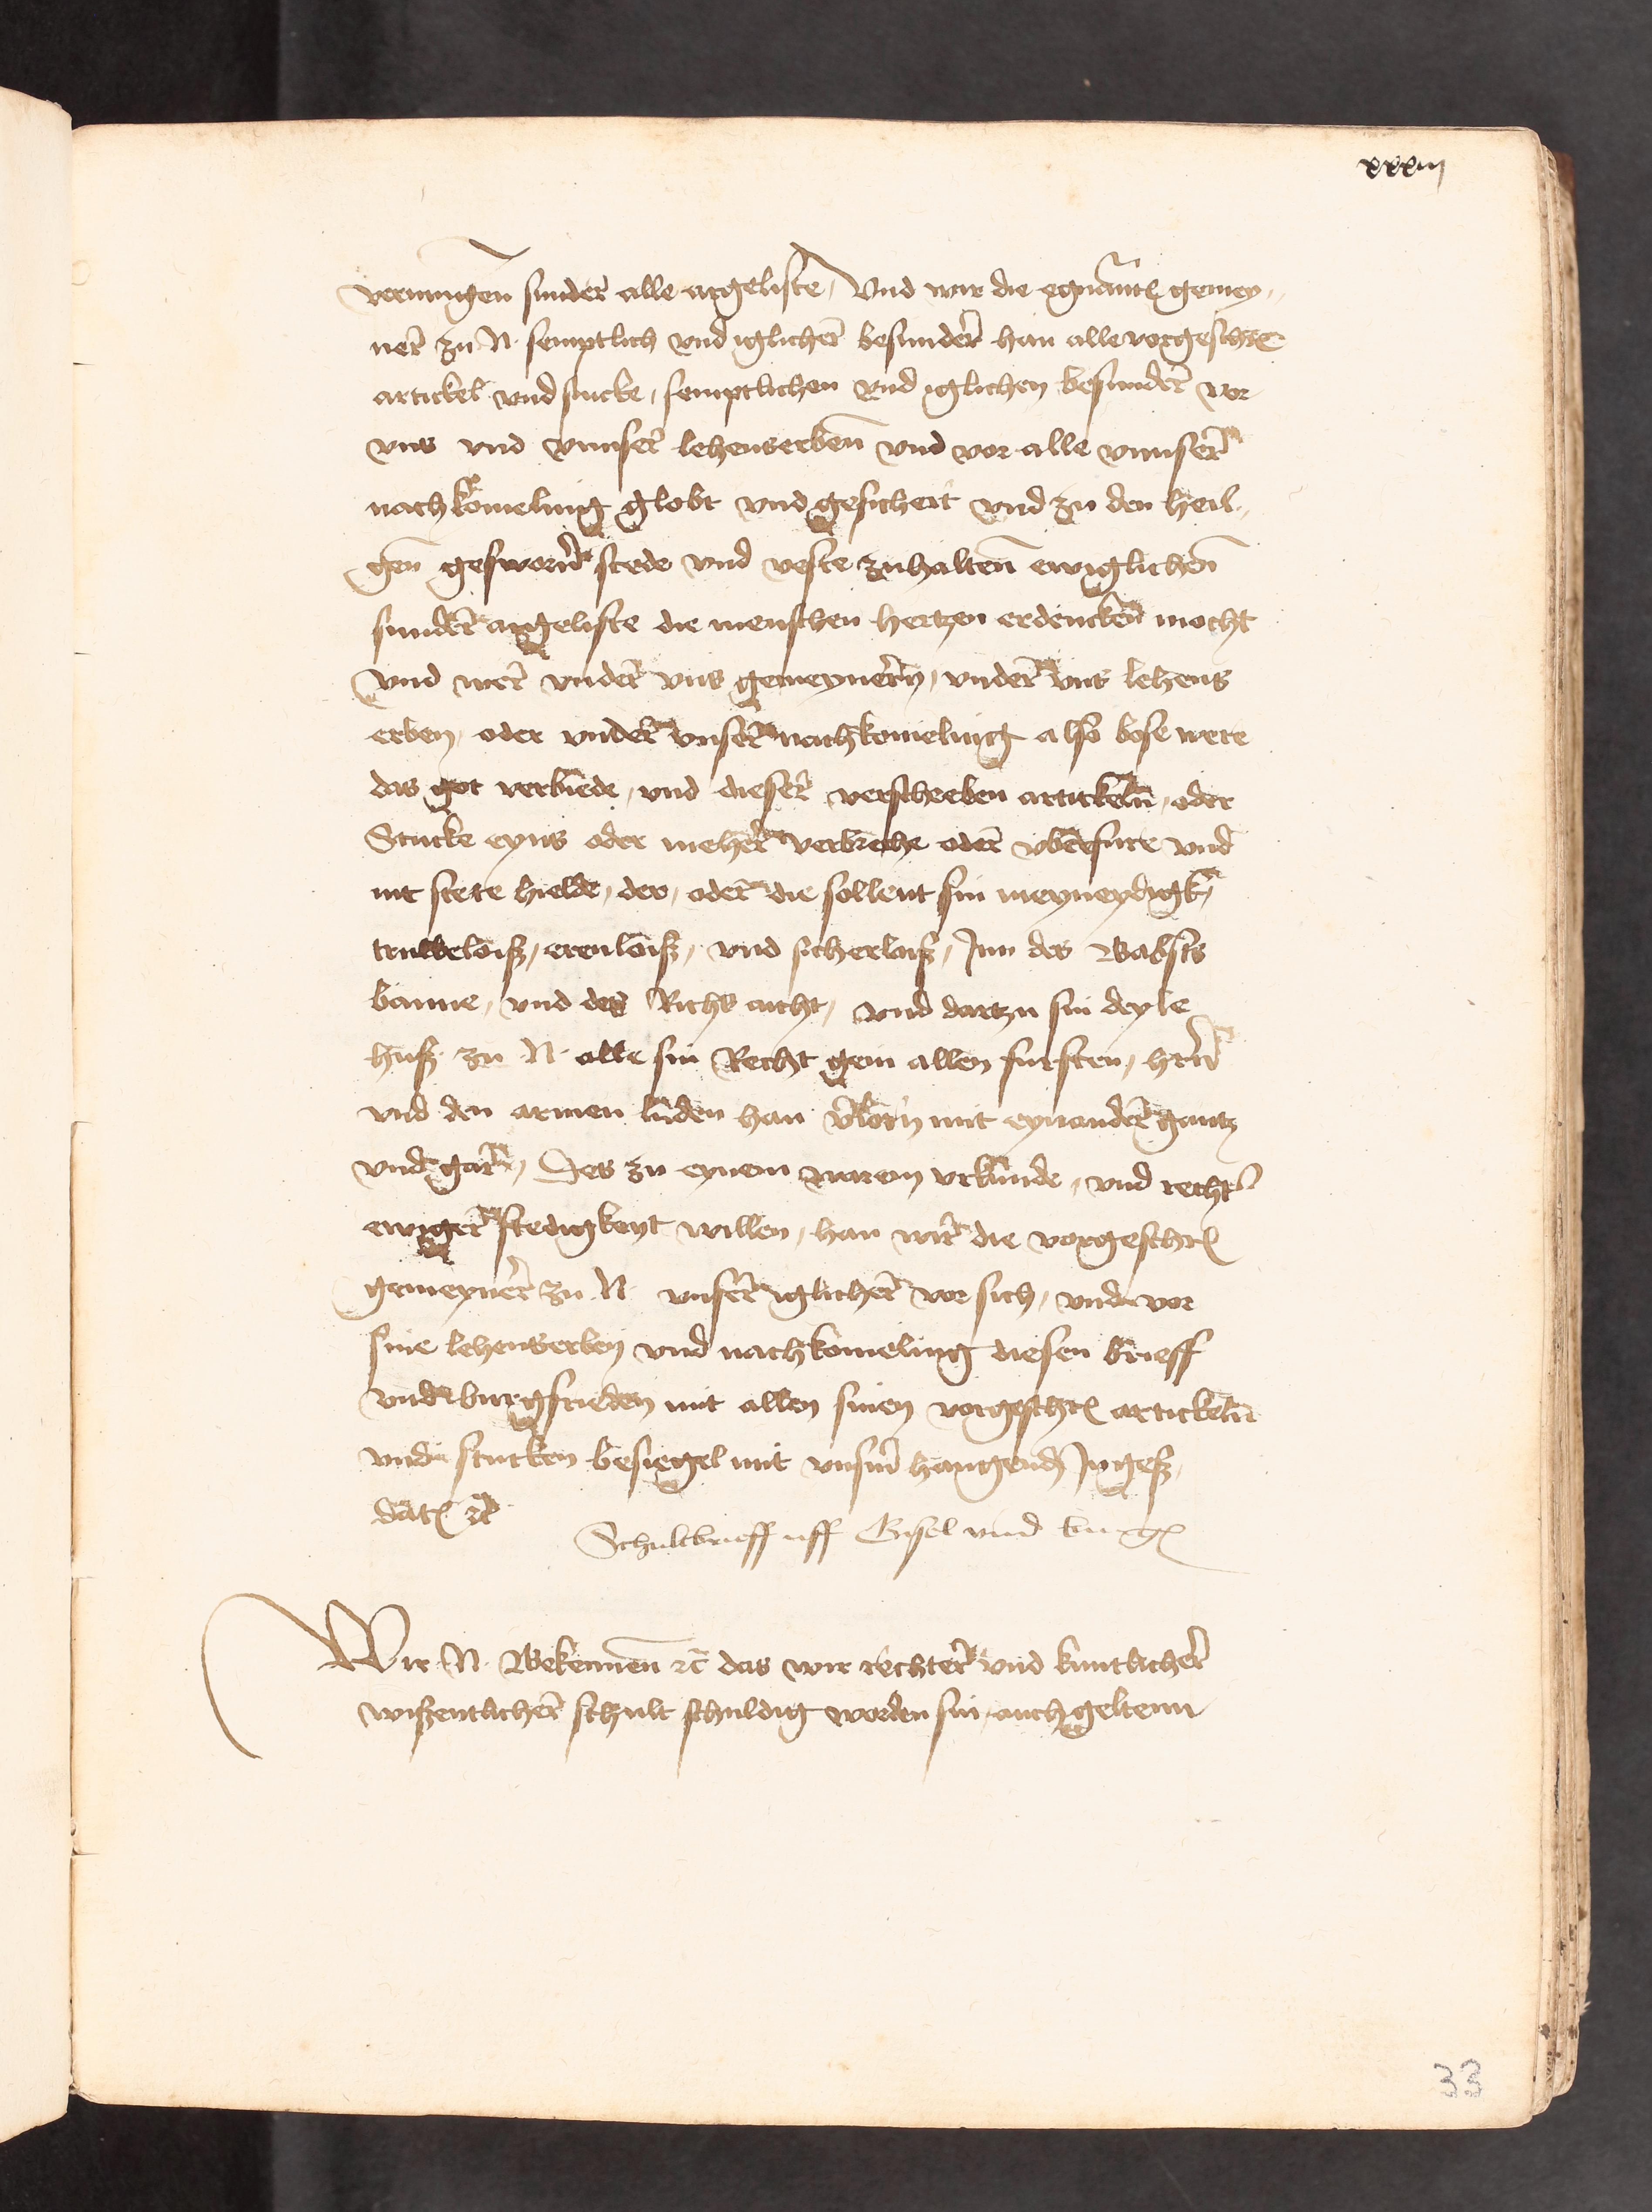 xxxiij
vermugen sunder alle argeliste, Vnd wir die egnan̄t gemey-
ner zu N. semptlich vnd iglicher besunder han alle vorgeschr
artickel vnd stucke, semptlichen vnd iglichen besunder vor
vns vnd vnnser lehenserben vnd vor alle vnnser
nachkomeling globt vnd gesichert vnd zu den heil-
gen gesworn stede vnd veste zuhalten ewiglichen
sunder argeliste die menschen hertzen erdencken mocht
Vnd wer vnder vns gemeynern, vnder vns lehens
erben, oder vnder vnser nachkomeling also bose were
das got verbiede, vnd dieser verschreben artickeln, oder
Stucke eyns oder meher verbreche oder vberfure vnd
nit stete hielde, der, oder die sollent sin meyneydigk,
truweloiß, erenloiß, vnd sicherloiß, Inn des Babsts
banne, vnd des Richs aicht, vnd dartzu sin deyle
huß zu N. alle sin Recht gein allen fursten, hern
vnd den armen luden han v̄lorn mit eynander gantz
vnd gar, Des zu eynem warem vrkunde, vnd recht
ewiger stedigkeyt willen, han wir die vorgeschr
gemeyner zu N. vnser iglicher vor sich, vnd vor
sine lehenserben vnd nachkomeling diesen brieff
vnd burgfrieden mit allen sinen vorgeschr artickeln
vnd stucken besiegel mit vnsern hangend Ingeß,
dat ꝛc
Schultbrieff uff Gisel vnd burg
Wir N. Bekennen ꝛc das wir rechter vnd kuntlicher
wißentlicher schult schuldig worden sin, auch geltenn
33